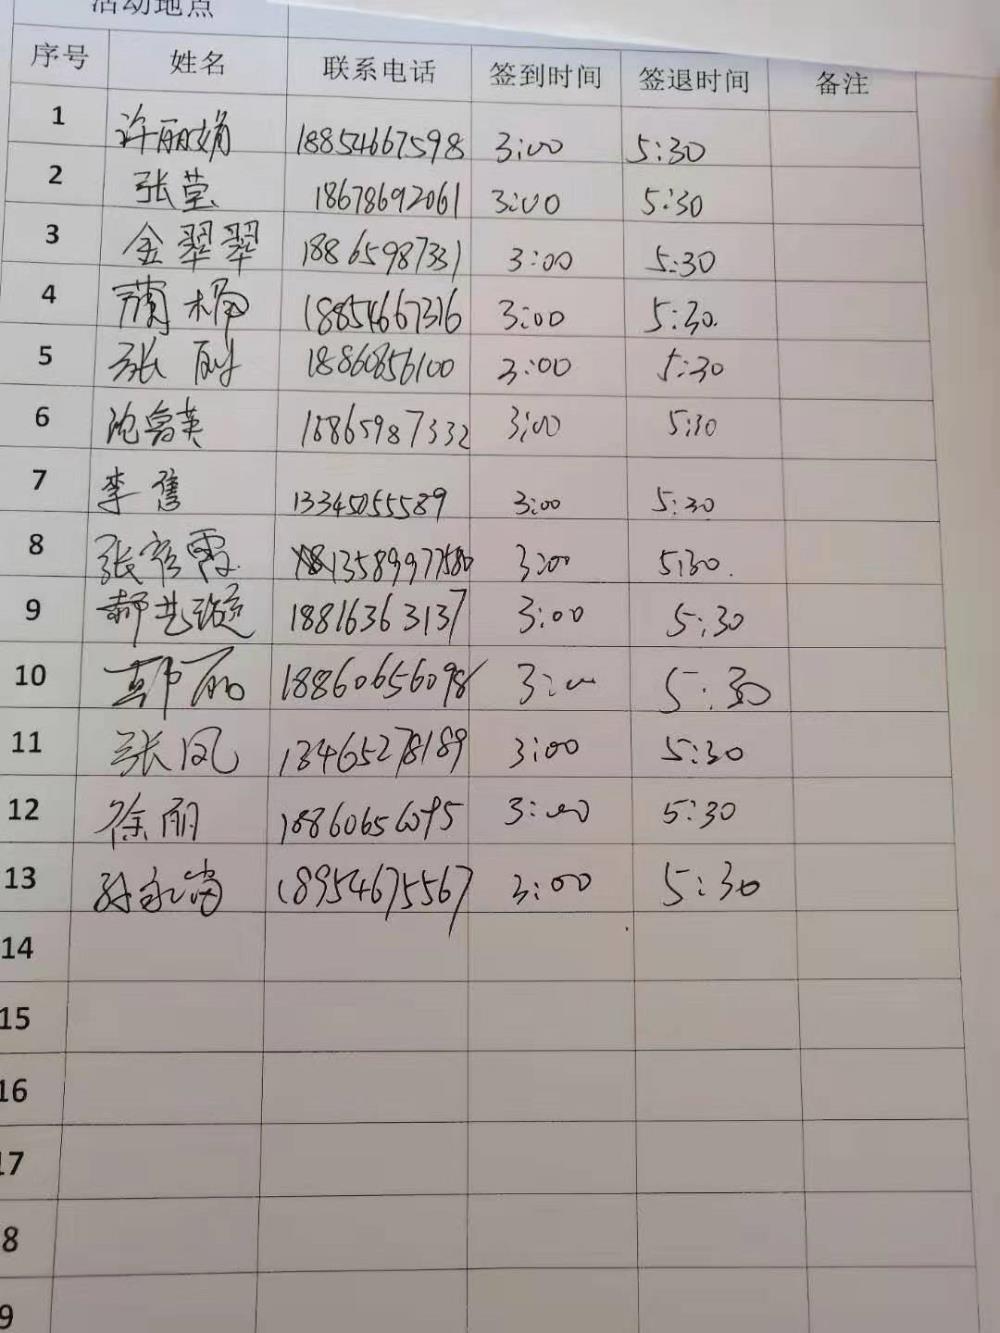 活动地点
序号 姓名 联系电话 签到时间 签退时间 备注
1 许丽娟 18854667598 3:00 5:30
2 张莹 18678692061 3:00 5:30
3 金翠翠 18865987331 3:00 5:30
4 18854667316 3:00 5:30.
5 张 18860856100 3:00 5:30
6 沈鲁英 18865987332 3:00 5:30
7 李隽 13345055589 3:00 5:30
8 张霞 13589977580 3:00 5:30.
9 郝艺璇 18816363137 3:00 5:30
10 郭丽 18860656098 3:00 5:30
11 张凤 13465278189 3:00 5:30
12 徐丽 18860656095 3:00 5:30
13 孙永 18954675567 3:00 5:30
14
15
16
17
8
9